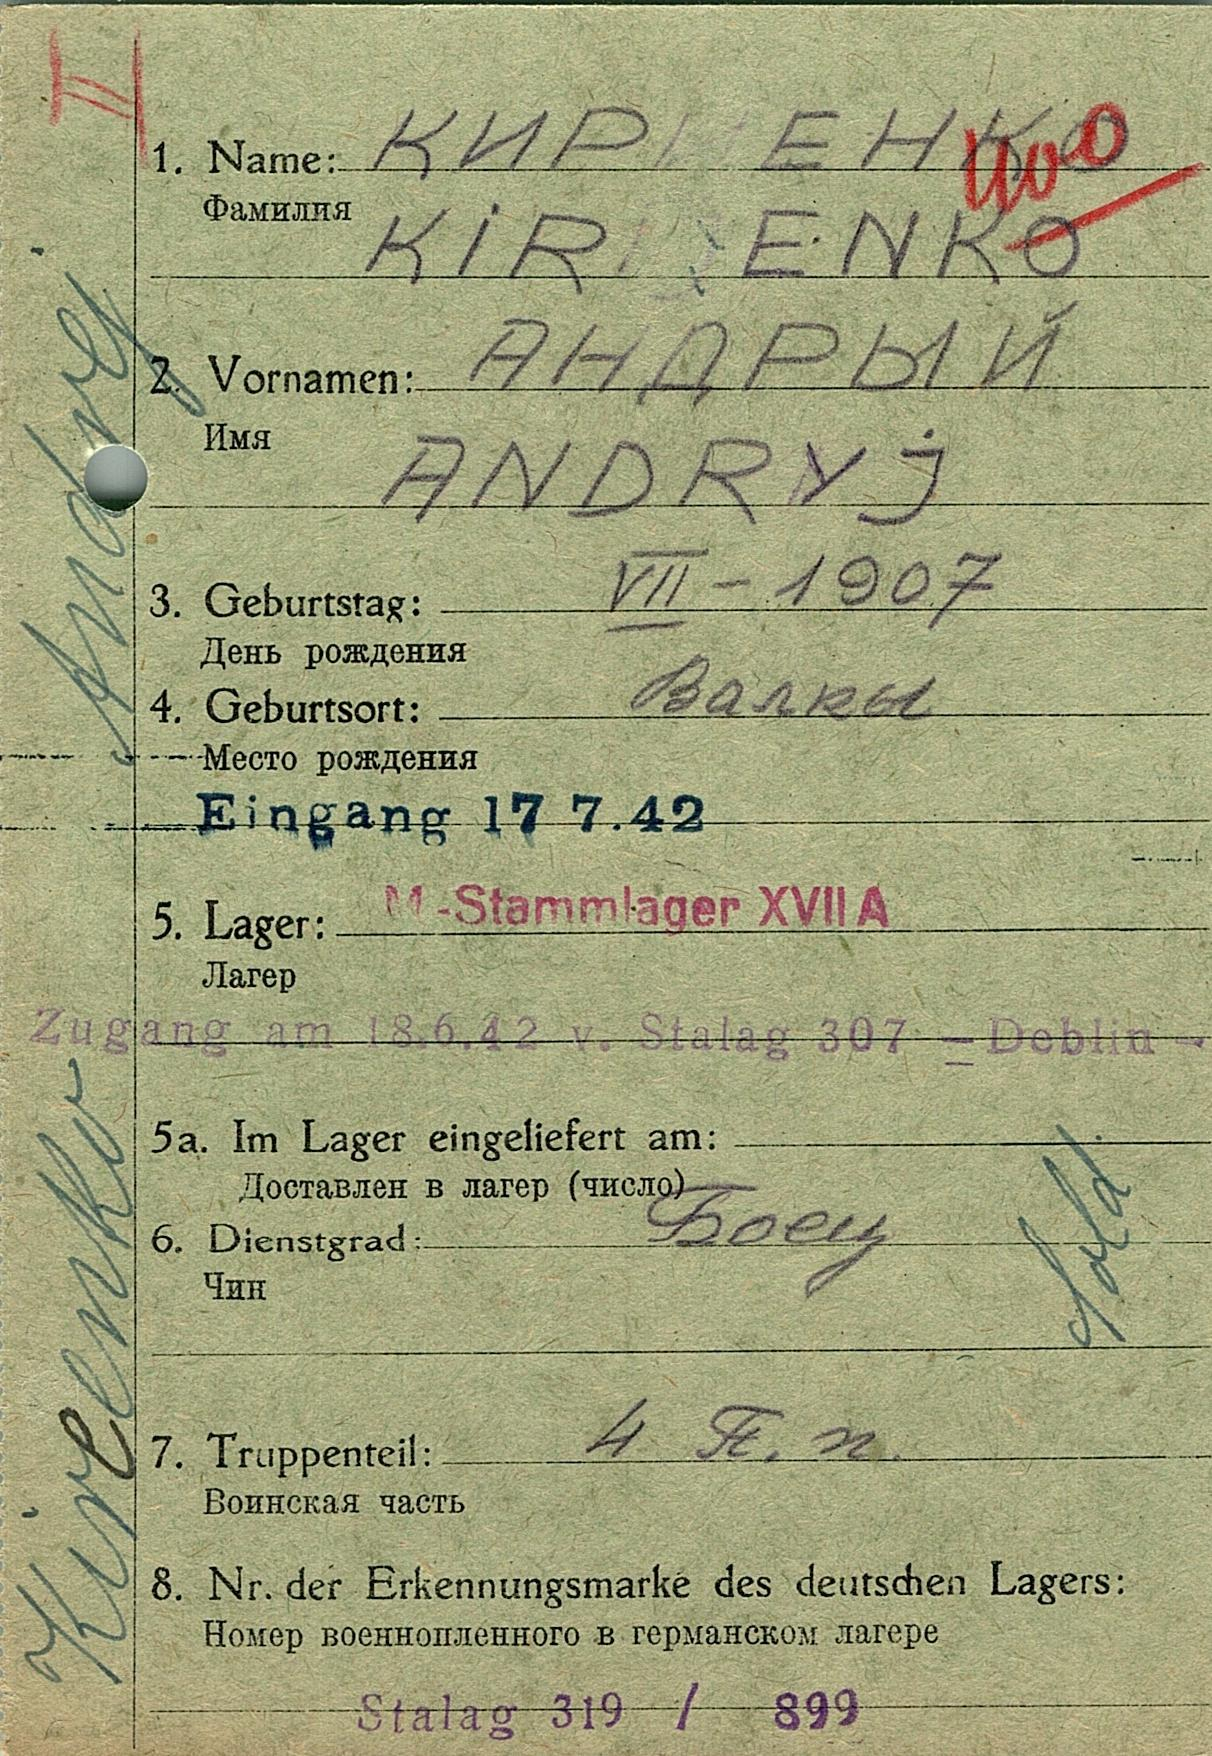 II
1. Name: КИРИЕНКО
Фамилия
KIRIJENKO
2. Vornamen: АНДРЫЙ
Имя
ANDRYj
3. Geburtstag: VII - 1907
День рождения
4. Geburtsort: Валкы
Место рождения
Eingang 17 7.42
5. Lager: M-Stammlager XVII A
Лагер
Zugang am 18.6.42 v. Stalag 307 - Deblin -
5a. Im Lager eingeliefert am:
Доставлен в лагер (число)
6. Dienstgrad: Боец
Чин
Sold.
7. Truppenteil: 4 П. п.
Воинская часть
8. Nr. der Erkennungsmarke des deutschen Lagers:
Номер военнопленного в германском лагере
Stalag 319 / 899
Kirelenko Andrej